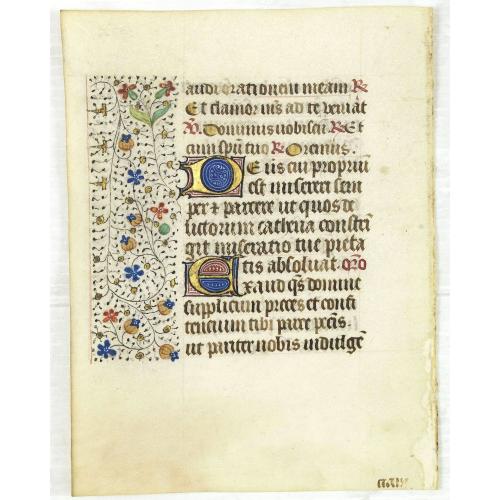 audi orationem meam R
Et clamor m̄s ad te veniāt
V. Dominus vobiscū R Et
cum spū tuo R Oremus.
Deus cui propriū
est misereri sem
per et parcere ut quos de
lictorum cathena constrī
git miseratio tue pieta
tis absoluat. oro
Exaudi q̄s domine
supplicum preces et confi
tencium tibi parce pctīs.
ut pariter nobis indulgē